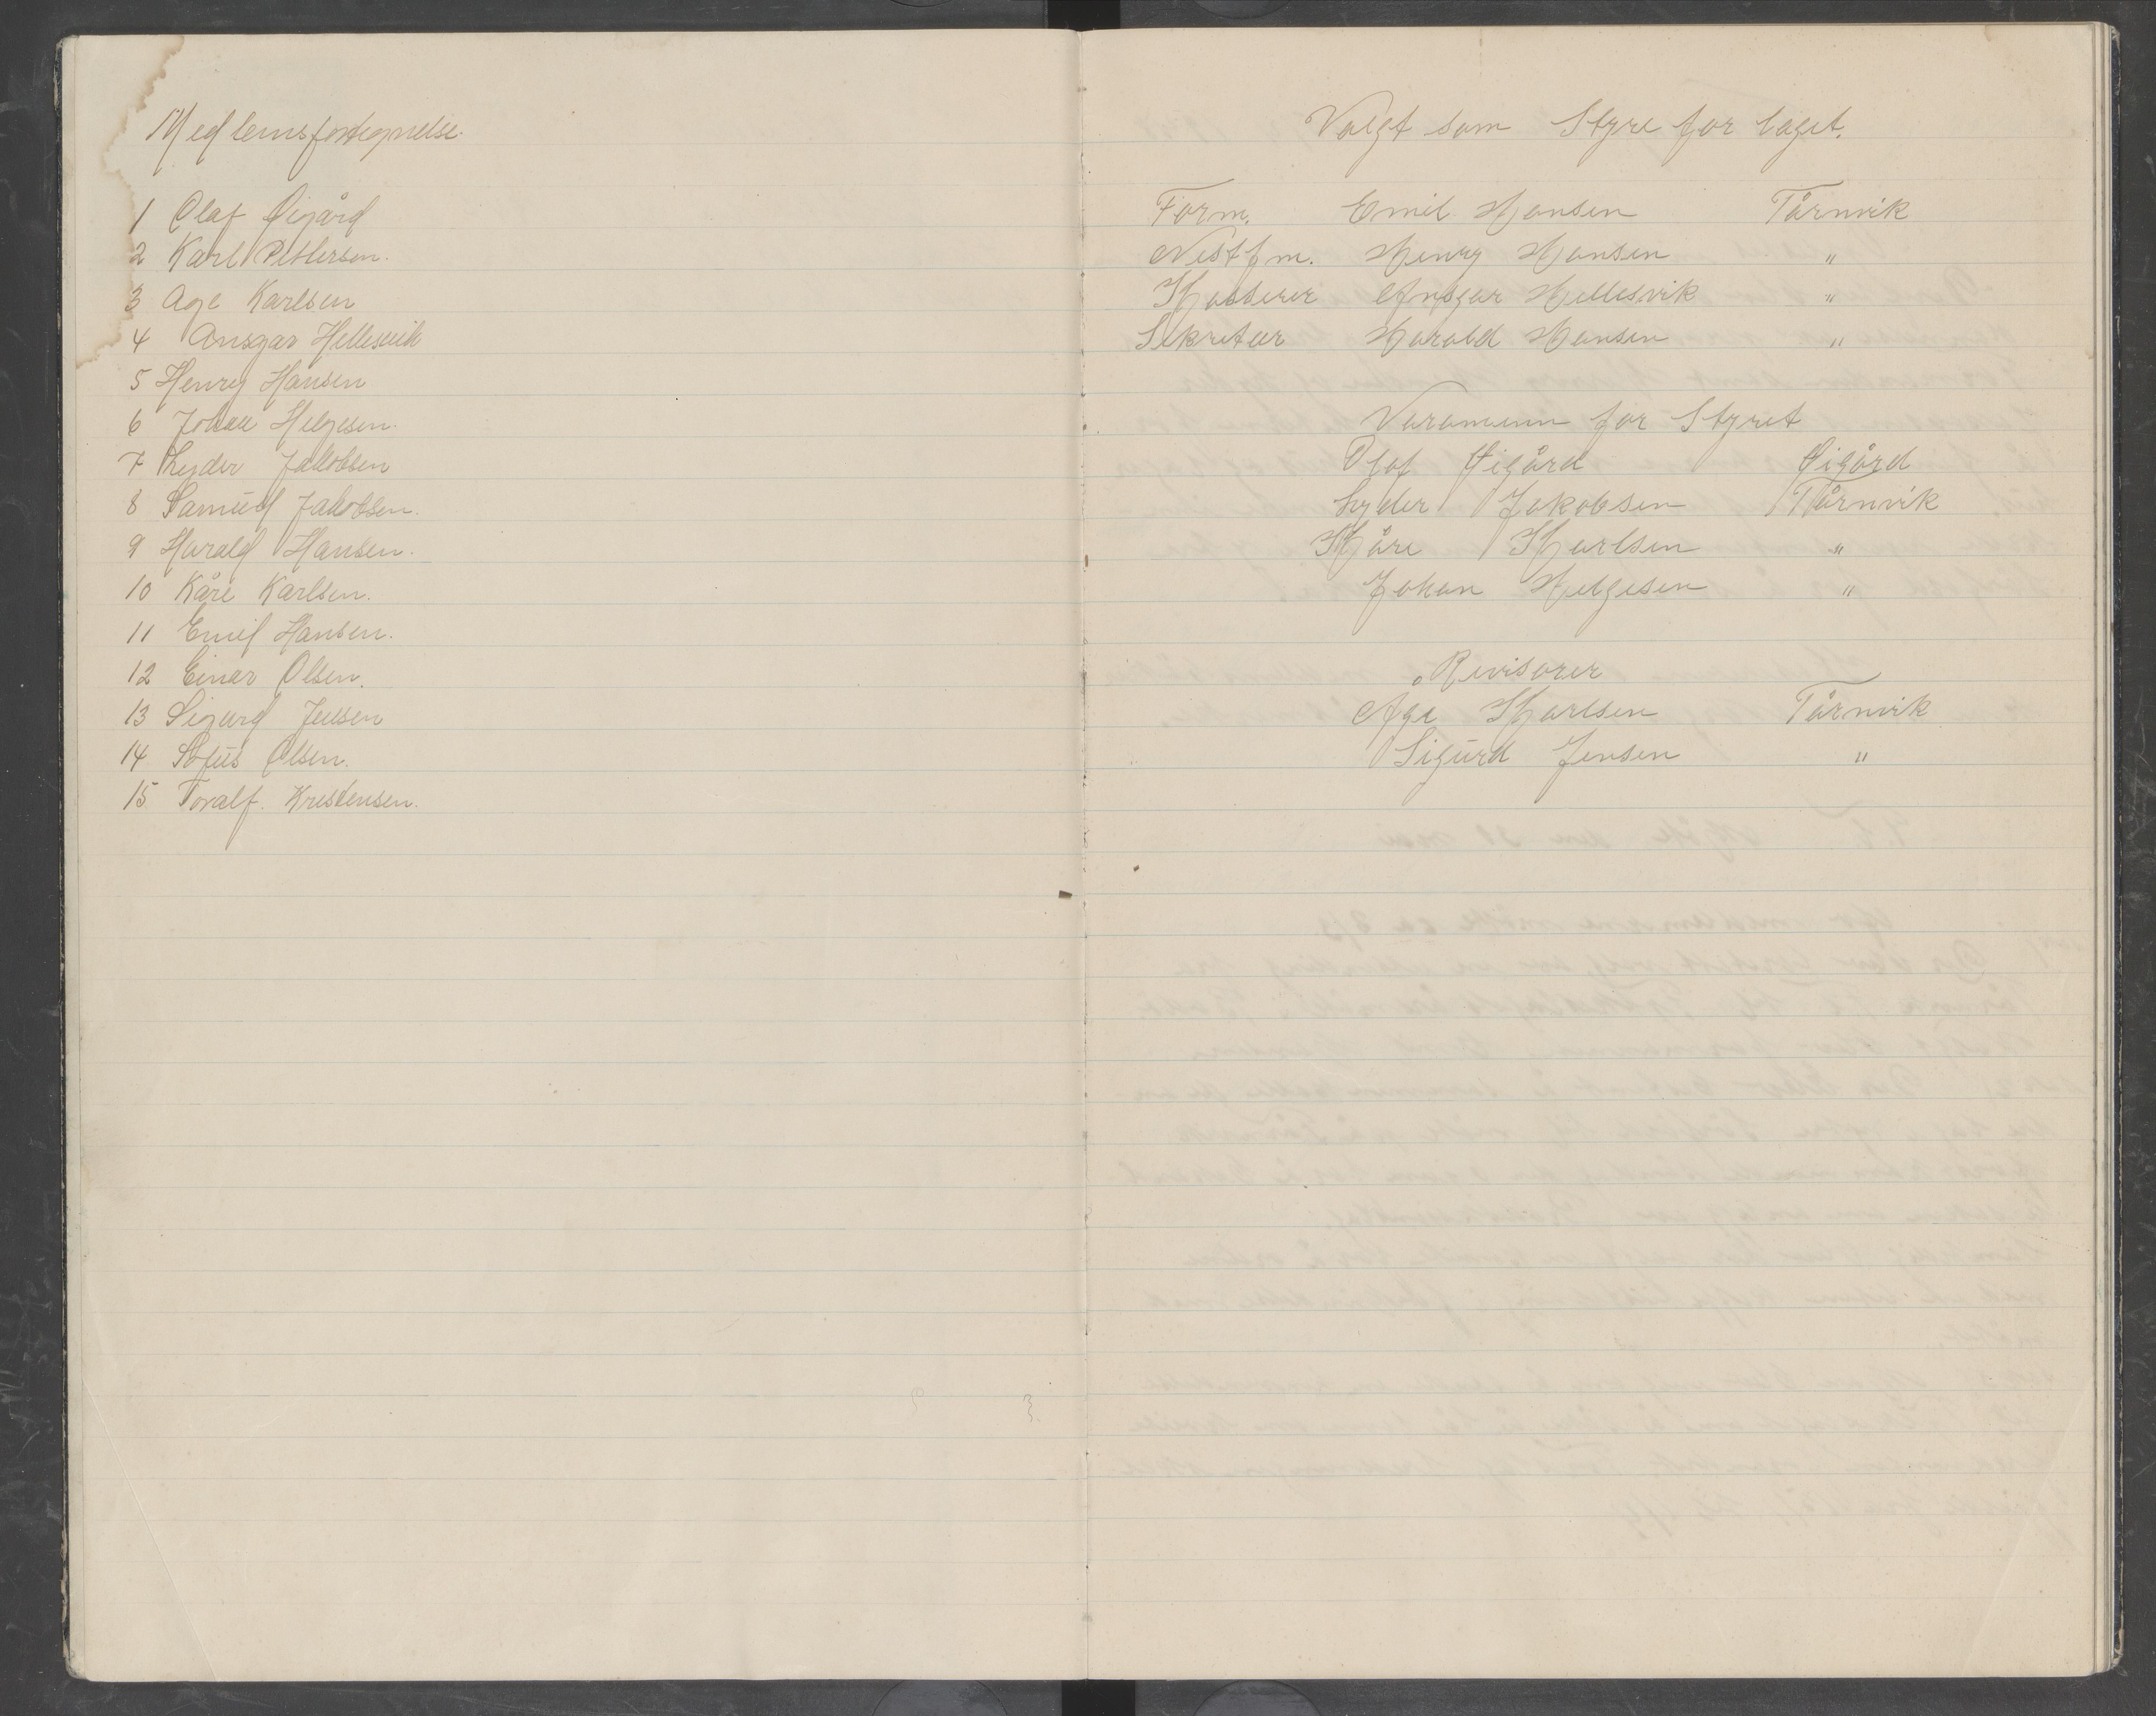 Medlemsfortegnelse.
1 Olaf Øigård
2 Karl Pettersen.
3 Age Karlsen
4 Ansgar Hellesvik
5 Henry Hansen
6 Johan Helgesen.
7 Lyder Jakobsen
8 Samuel Jakobsen.
9 Harald Hansen.
10 Kåre Karlsen.
11 Emil Hansen.
12 Einar Olsen.
13 Sigurd Jensen
14 Sofus Olsen.
15 Toralf. Kristensen.
Valgt som Styre for laget.
Form. Emil Hansen Tårnvik
Nestfm. Henry Hansen "
Kasserer Ansgar Hellesvik "
Sekretær Harald Hansen "
Varamenn for Styret
Olaf Øigård Øigård
Lyder Jakobsen Tårnvik
Kåre Karlsen "
Johan Helgesen "
Revisorer
Åge Karlsen Tårnvik
Sigurd Jensen "